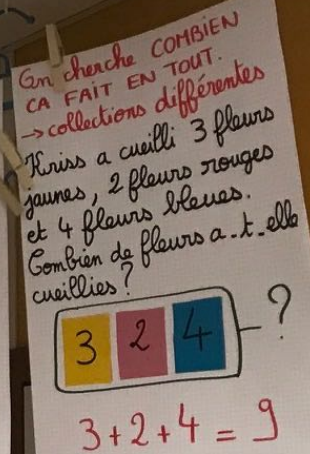 On cherche COMBIEN
CA FAIT EN TOUT.
→ collections différentes
Kriss a cueilli 3 fleurs
jaunes, 2 fleurs rouges
et 4 fleurs bleues.
Combien de fleurs a-t-elle
cueillies ?
3 2 4 ?
3+2+4 = 9